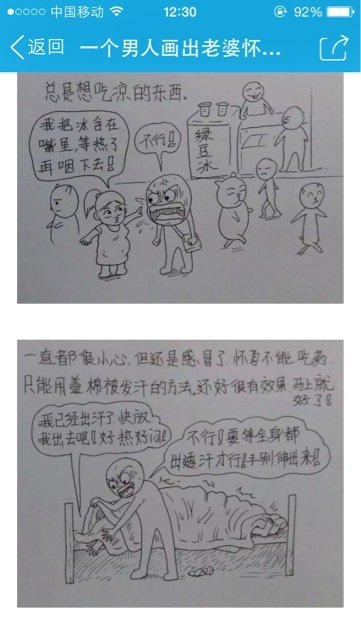 中国移动 12:30 92%
返回 一个男人画出老婆怀...
总是想吃凉的东西。
我把冰含在
嘴里,等热了
再咽下去!
不行!
绿豆冰
一直都很小心,但还是感冒了,怀孕不能吃药,
只能用盖棉被发汗的方法。还好很有效果,马上就
好了!
我已经出汗了,快放
我出去吧!好热好闷!
不行!要等全身都
出透汗才行!手别伸出来!